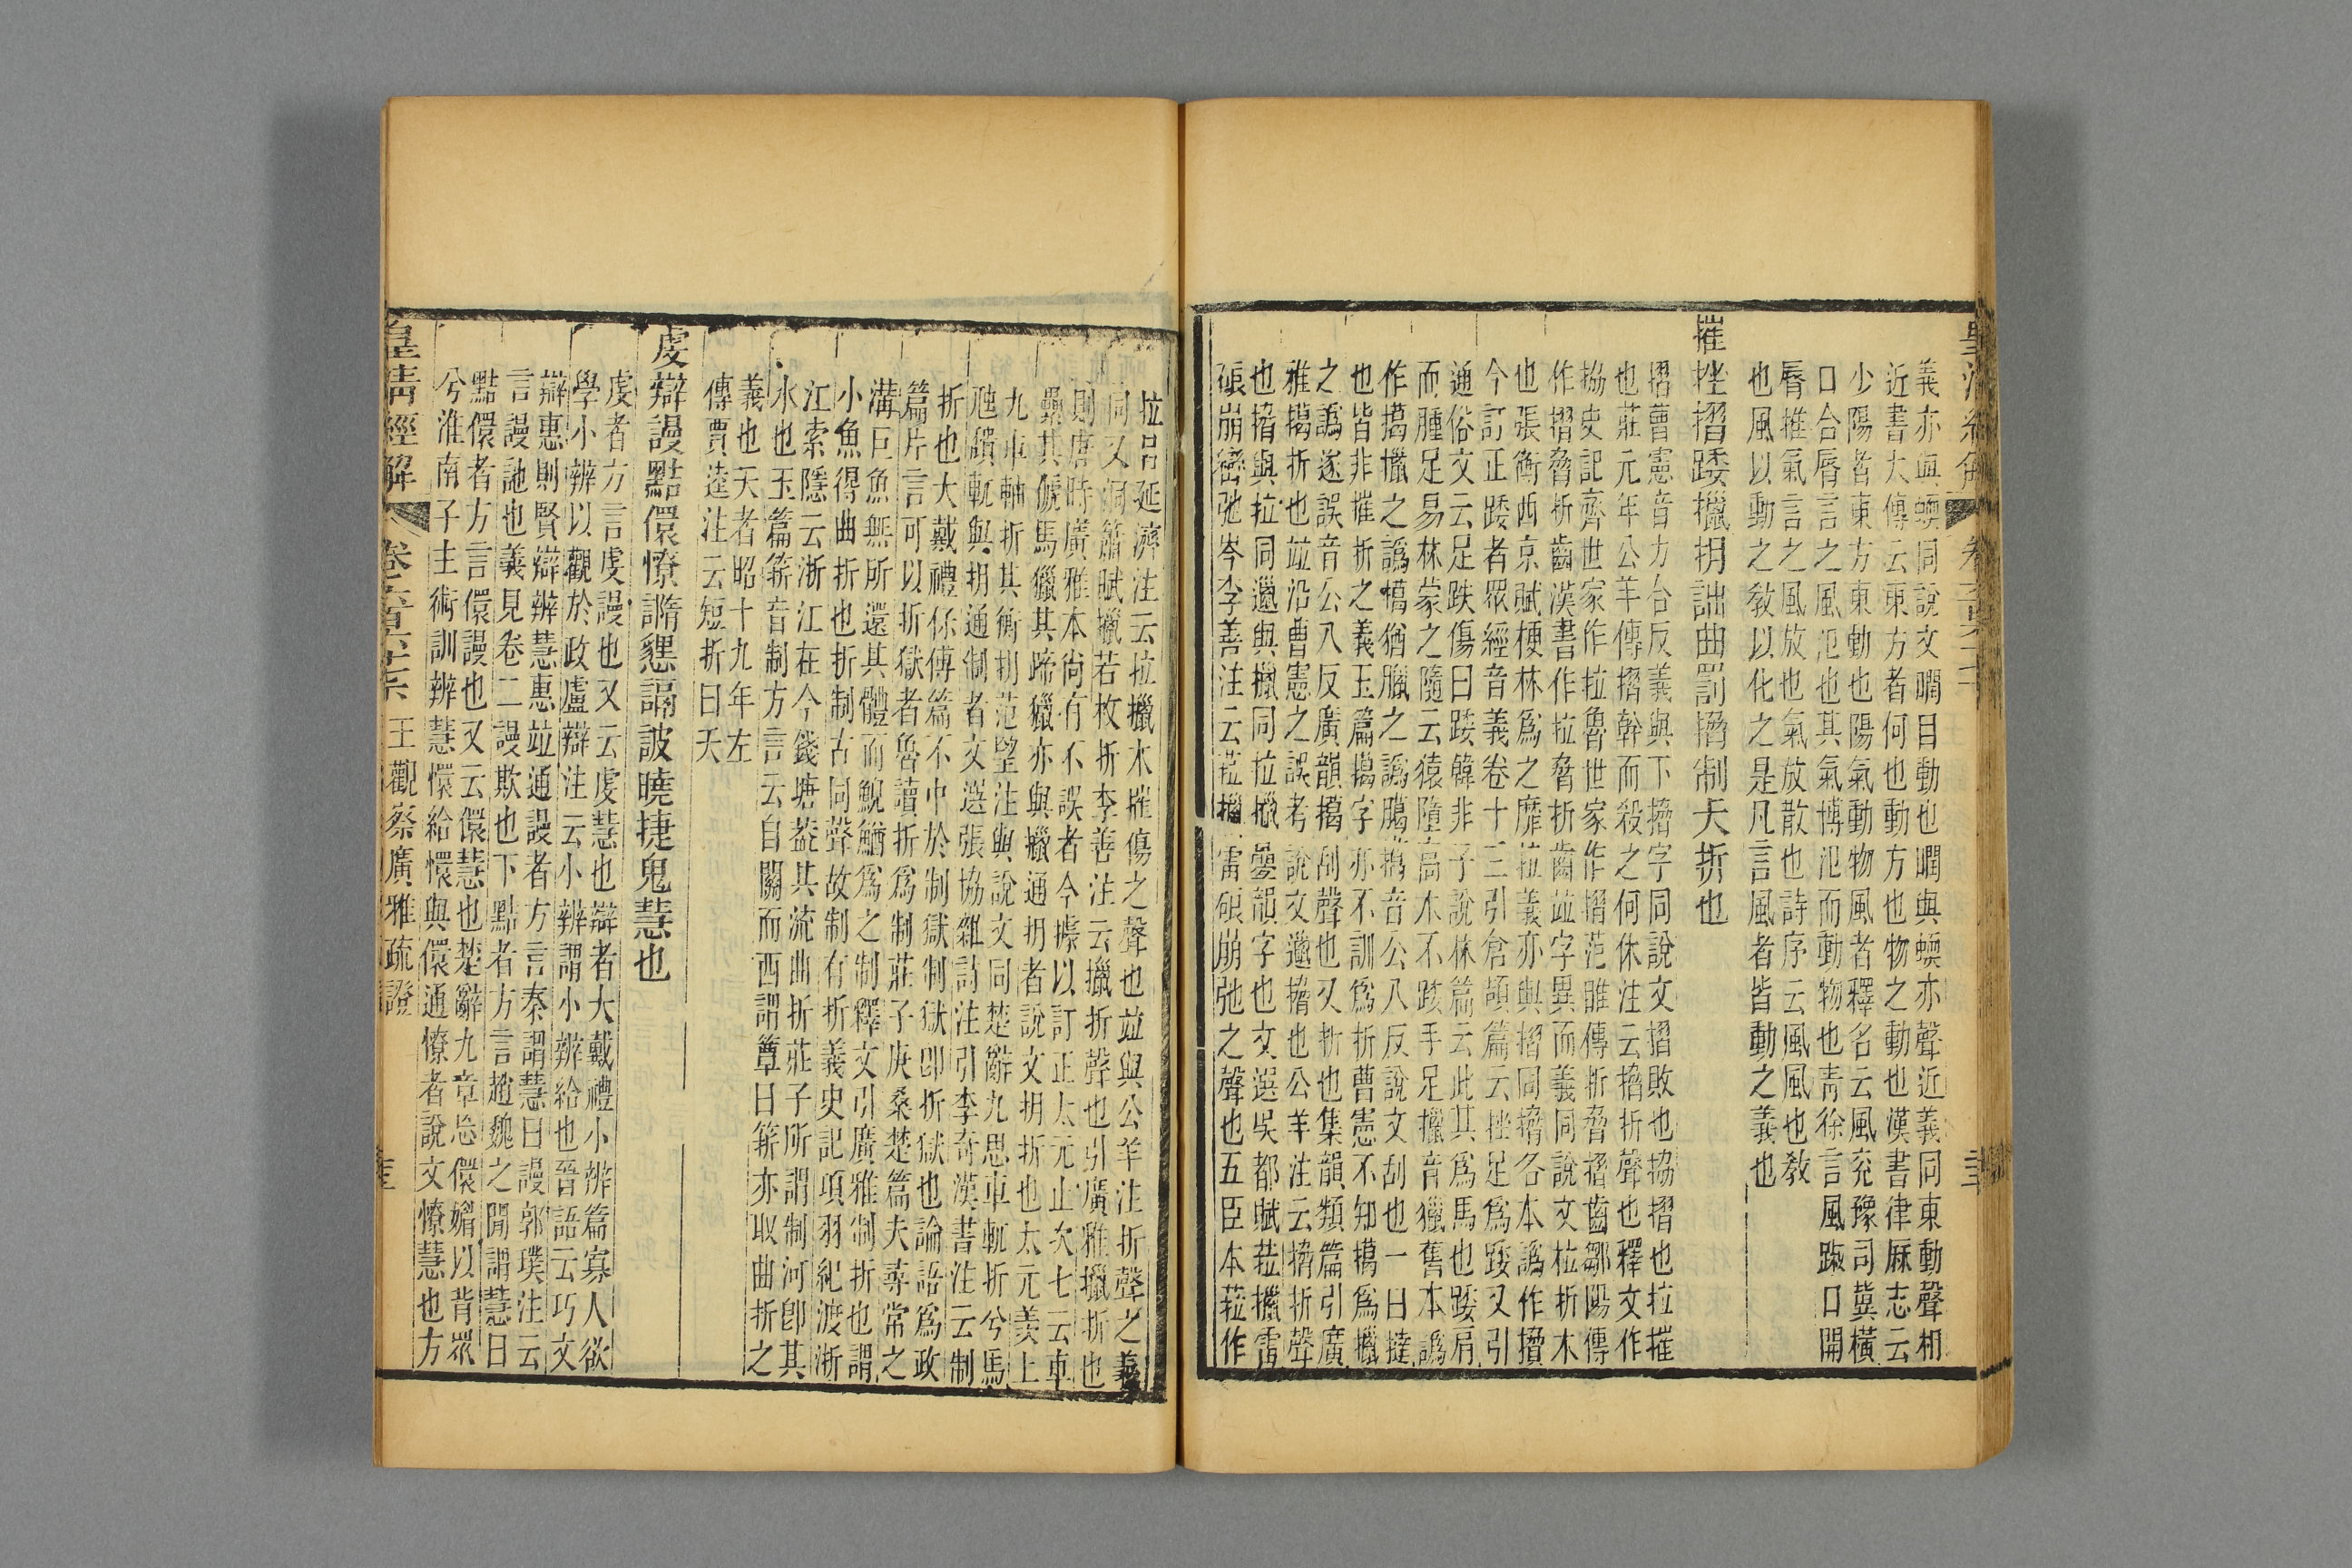 義亦與蝡同說文瞤目動也瞤與蝡亦聲近義同東動聲相
近書大傳云東方者何也動方也物之動也漢書律厤志云
少陽者東方東動也陽氣動物風者釋名云風兖豫司冀橫
口合脣言之風氾也其氣博氾而動物也靑徐言風踧口開
脣推氣言之風放也氣放散也詩序云風風也敎
也風以動之敎以化之是凡言風者皆動之義也
摧挫摺踒擸抈詘曲罰搚制夭折也
摺曹憲音力台反義與下搚字同說文摺敗也拹摺也拉摧
也莊元年公羊傳搚幹而殺之何休注云搚折聲也釋文作
拹史記齊世家作拉魯世家作摺范雎傳折脅摺齒鄒陽傳
作摺脅折齒漢書作拉脅折齒竝字異而義同說文柆折木
也張衡西京賦梗林爲之靡拉義亦與摺同搚各本譌作㩶
今訂正踒者眾經音義卷十三引倉頡篇云挫足爲踒又引
通俗文云足跌傷曰踒韓非子說林篇云此其爲馬也踒肩
而腫足易林蒙之隨云猿墮高木不踒手足擸音獵舊本譌
作擖擸之譌擖猶臘之譌臈擖音公八反說文刮也一曰撻
也皆非摧折之義玉篇擖字亦不訓爲折曹憲不知擖爲擸
之譌遂誤音公八反廣韻擖刮聲也又折也集韻類篇引廣
雅擖折也竝沿曹憲之誤考說文邋搚也公羊注云搚折聲
也搚與拉同邋與擸同拉擸疊韻字也文選吳都賦菈擸雷
硠崩巒弛岑李善注云菈擸雷硠崩弛之聲也五臣本菈作
拉呂延濟注云拉擸木摧傷之聲也竝與公羊注折聲之義
同又洞簫賦擸若枚折李善注云擸折聲也引廣雅擸折也
則唐時廣雅本尙有不誤者今據以訂正太元止次七云車
纍其俿馬獵其蹄獵亦與擸通抈者說文抈折也太元羡上
九車軸折其衡抈范望注與說文同楚辭九思車軏折兮馬
虺頹軏與抈通制者文選張協雜詩注引李奇漢書注云制
折也大戴禮保傅篇不中於制獄制獄卽折獄也論語爲政
篇片言可以折獄者魯讀折爲制莊子庚桑楚篇夫尋常之
溝巨魚無所還其體而鯢鰌爲之制釋文引廣雅制折也謂
小魚得曲折也折制古同聲故制有折義史記項羽紀渡浙
江索隱云浙江在今錢塘葢其流曲折莊子所謂制河卽其
水也玉篇䉣音制方言云自關而西謂簟曰䉣亦取曲折之
義也夭者昭十九年左
傳賈逵注云短折曰夭
虔辯謾黠儇憭譎㦧謧詖曉捷鬼慧也
虔者方言虔謾也又云虔慧也辯者大戴禮小辨篇寡人欲
學小辨以觀於政盧辯注云小辨謂小辨給也晉語云巧文
辯惠則賢辯辨慧惠竝通謾者方言秦謂慧曰謾郭璞注云
言謾訑也義見卷二謾欺也下黠者方言趙魏之閒謂慧曰
黠儇者方言儇謾也又云儇慧也楚辭九章忘儇媚以背眾
兮淮南子主術訓辨慧懁給懁與儇通憭者說文憭慧也方
皇淸經解
王觀察廣雅疏證